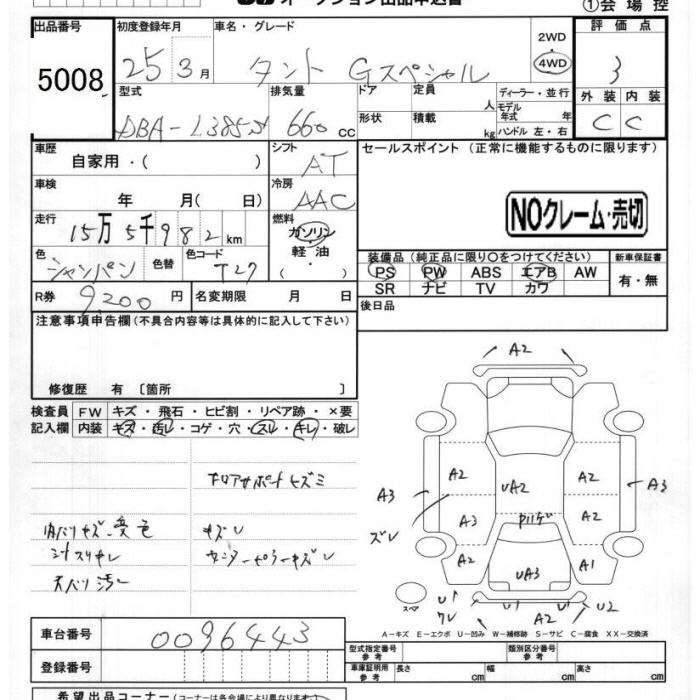 ①会場控
出品番号 5008
初度登録年月 25 3月
車名・グレード タント Gスペシャル
2WD
・
4WD
評価点 3
外装 内装
C C
型式 DBA-L385S
排気量 660 cc
ドア
定員 人
形状
積載 kg
ディーラー・並行
モデル年式 年
ハンドル 左・右
車歴 自家用・( )
シフト AT
セールスポイント(正常に機能するものに限ります)
車検 年 月( 日)
冷房 AAC
NOクレーム・売切
走行 15万5千982 km
燃料 ガソリン
軽油
・( )
色 シャンパン
色替
色コード T27
装備品(純正品に限り○をつけてください)
新車保証書
PS PW ABS エアB AW
SR ナビ TV カワ
有・無
R券 9200円
名変期限 月 日
後日品
注意事項申告欄(不具合内容等は具体的に記入して下さい)
修復歴 有 [箇所 ]
検査員記入欄
FW キズ・飛石・ヒビ割・リペア跡・×要
内装 キズ・汚レ・コゲ・穴・スレ・キレ・破レ
内バリキズ・変色
シートスリキレ
天バリ汚レ
A2
A2 UA2 A2
A3 A3
ズレ
A3 A2
A2 UA3 A1
U1 U1 U2
A2
スペア
A-キズ E-エクボ U-凹み W-補修跡 S-サビ C-腐食 XX-交換済
車台番号 0096443
登録番号
型式指定番号 参考
類別区分番号 参考
車庫証明用 参考 長さ cm 幅 cm 高さ cm
希望出品コーナー(コーナーは各会場により異なります)